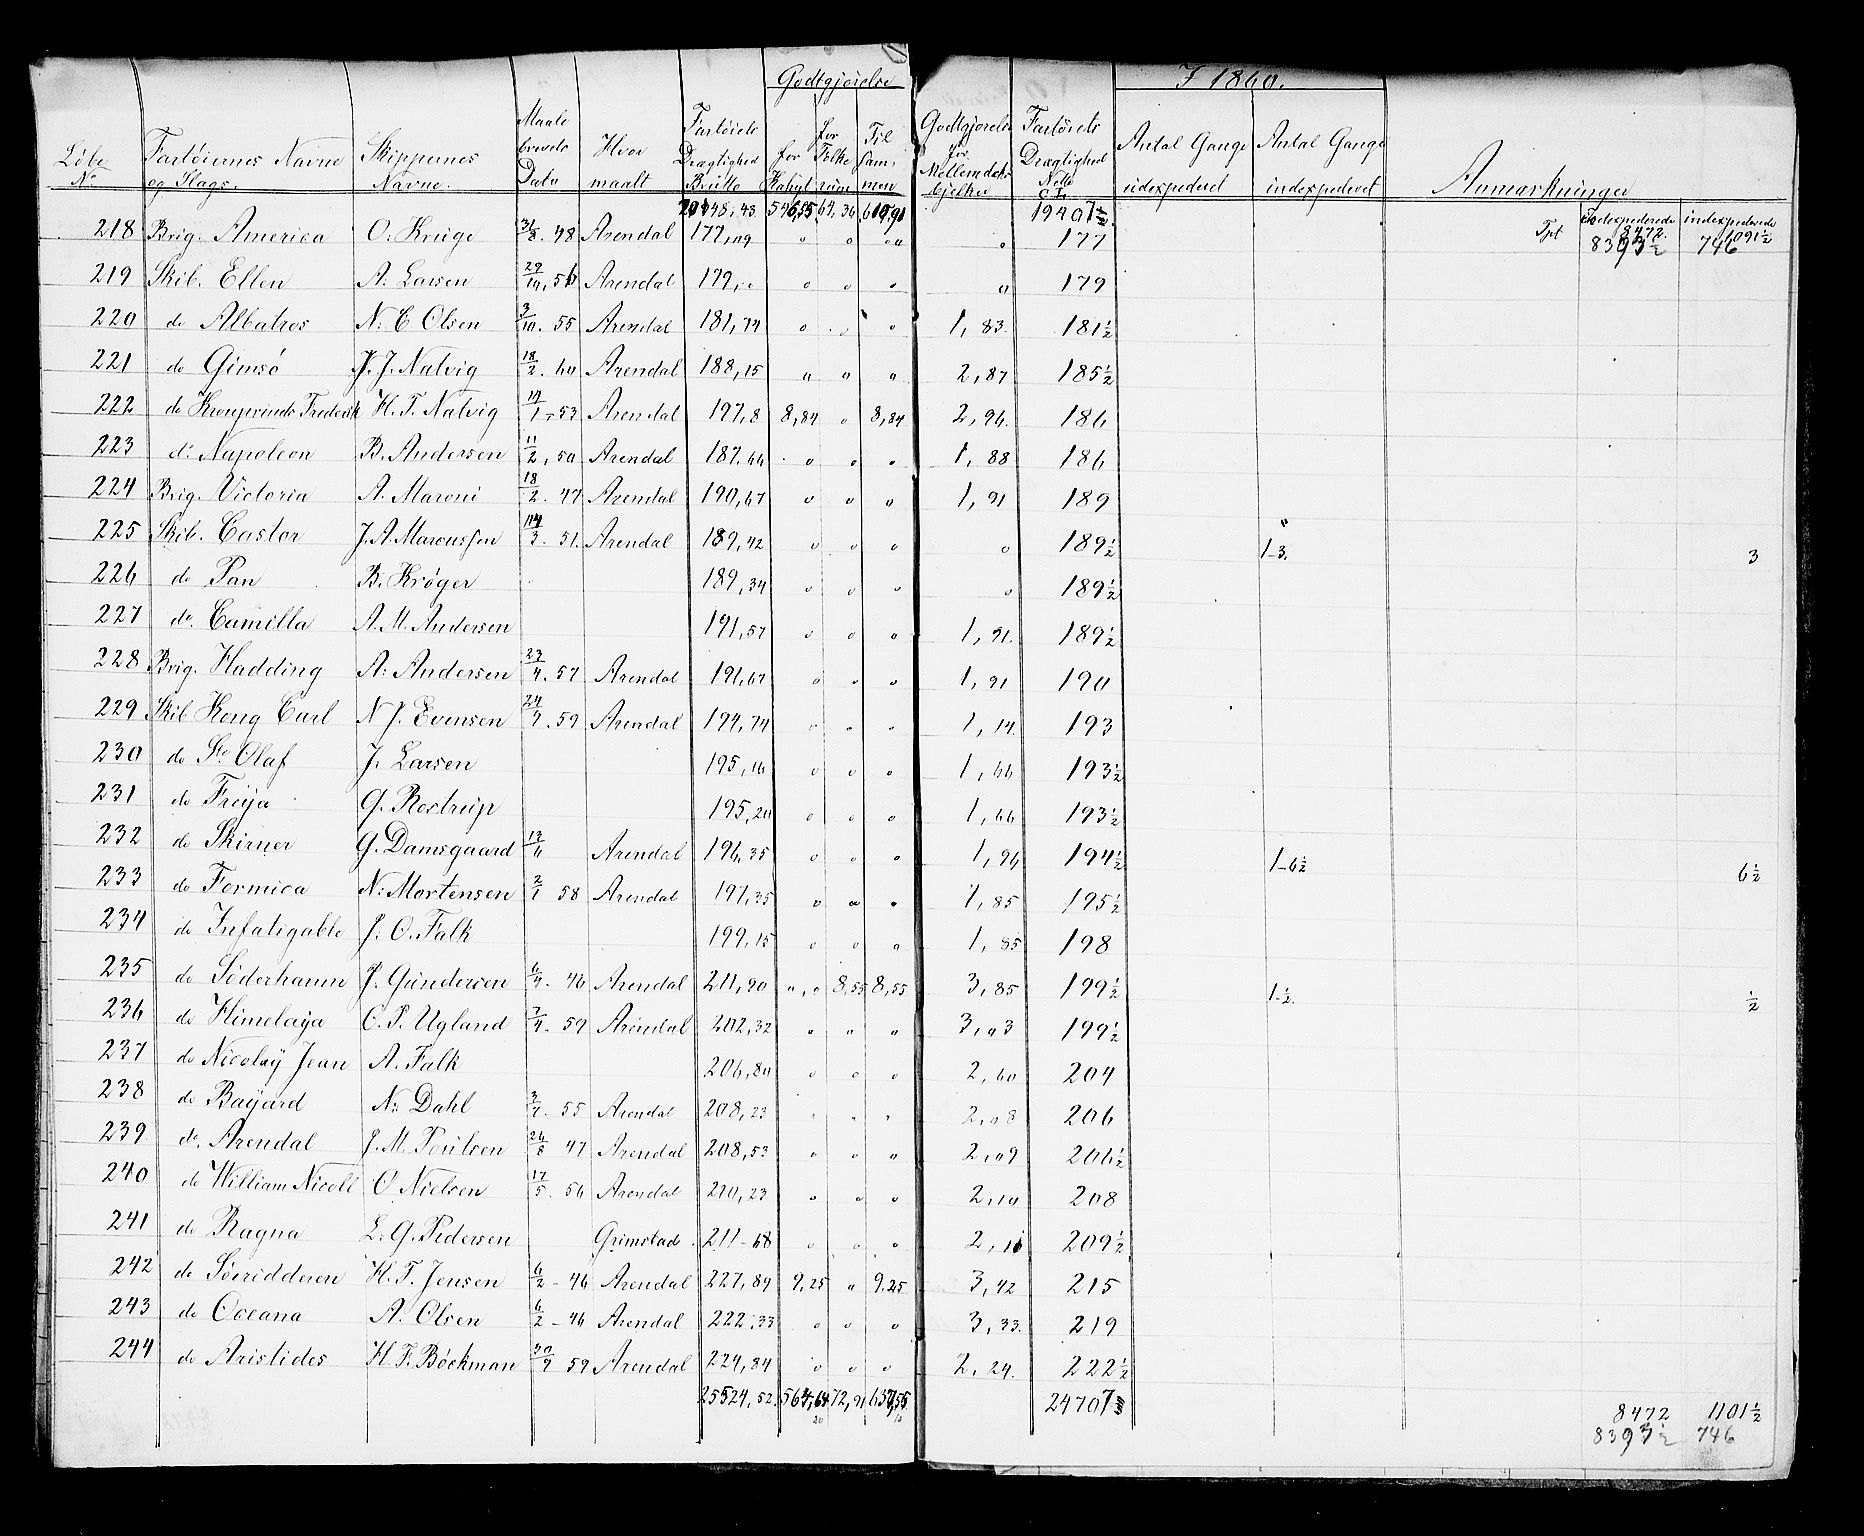 Godtgjørelse I 1860.
Løbe No Fartøiernes Navne og Slags. Skippernes Navne. Maale brevets Dato Hvor maalt Fartøiets Drægtighed Brutto for Kahyt for Folke rum Til Sammen Godtgjørelse for Mellemdeks bjelker Fartøiets Drægtighed Netto C. L. Antal Gange udexpederet Antal Gange indexpederet Anmærkninger
64,36 19407½ Udexpederede indexpederede
8472. 1091½
218 Brig. America O. Krüge 31/8. 48 Arendal 177,09 " " " " 177 Tpt 8393½ 746
219 Skib. Ellen A. Larsen 29/10, 56 Arendal 179," " " " " 179
220 do Albatros N. C Olsen 3/10. 55 Arendal 181,74 " " " 1,83. 181½
221 do Gimsö J. J. Natvig 18/2. 60 Arendal 188,15 " " " 2,87 185½
222 do Kronprinds Frederik H. T. Natvig 14/1-53 Arendal 197,8 8,84 " 8,84 2,96. 186
223 do Napoleon B. Andersen 11/2, 50 Arendal 187,66 " " " 1,88 186
224 Brig. Victoria A. Maroni 18/2. 47 Arendal 190,67 " " " 1,91 189
225 Skib. Castor J. A. Marcussen 14/3. 51. Arendal 189,42 " " " " 189½ 1-3. 3
226 do Pan B. Krøger 189,34 " " " " 189½
227 do. Camilla A. M. Andersen 191,57 " " " 1,91. 189½
228 Brig. Hadding A. Andersen 23/4. 57 Arendal 191,67 " " " 1,91 190
229 Skib Kong Carl N J. Evensen 24/7. 59 Arendal 194,74 " " " 1,14. 193
230 do St. Olaf J. Larsen 195,16 " " " 1,66 193½
231 do Freija G. Rostrup 195,20 " " " 1,66 193½
232 do Skirner G. Damsgaard 13/6 Arendal 196,35 " " " 1,96 194½ 1-6½ 6½
233 do Formica N. Mortensen 2/1 58 Arendal 197,35 " " " 1,85 195½
234 do Infatigable J. O. Falk 199,15 " " " 1,85 198
235 do Söderhamn J. Gundersen 6/4. 46 Arendal 211,90 "," 8,55 8,55 3,85 199½ 1-½. ½
236 do Himelaya O. P. Ugland 7/4. 59 Arendal 202,32 " " " 3,03 199½
237 do Nicolaÿ Jean A. Falk 206,80 " " " 2,60 204
238 do Bayard N. Dahl 3/7. 55 Arendal 208,23 " " " 2,08 206
239. do. Arendal J. M. Poulsen 26/8 47 Arendal 208,53 " " " 2,09 206½
240 do William Nicoll O Nielsen 17/5. 56 Arendal 210,23 " " " 2,10 208
241 do Ragna L. G. Pedersen Grimstad. 211-68 " " " 2,11 209½
242 do Søeridderen H. T. Jensen 6/2-46 Arendal 227,89 9,25 " 9.25 3,42 215
243 do Oceana A. Olsen 6/2-46 Arendal 222.33 " " " 3,33. 219
244 do Aristides H. F. Böckman 30/7 59 Arendal 224,84 " " " 2,24. 222½
25524,52. 72,91 8472 1101½
8393½ 746